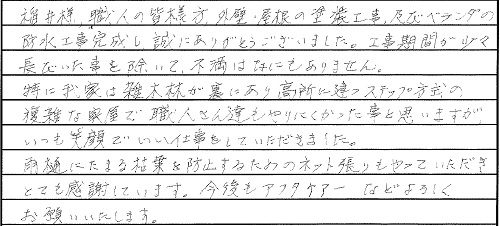 福井様、職人の皆様方、外壁・屋根の塗装工事、及びベランダの
防水工事完成し誠にありがとうございました。工事期間が少々
長びいた事を除いて、不満はなにもありません。
特に我家は雑木林が裏にあり高所に建つステップ方式の
複雑な家屋で職人さん達もやりにくかった事と思いますが、
いつも笑顔でいい仕事をしていただきました。
雨樋にたまる枯葉を防止するためのネット張りもやっていただき
とても感謝しています。今後もアフタケアーなどよろしく
お願いいたします。